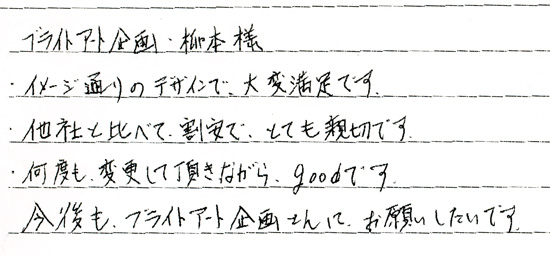 ブライトアート企画・柳本様
・イメージ通りのデザインで、大変満足です。
・他社と比べて、割安で、とても親切です。
・何度も、変更して頂きながら、goodです。
今後も、ブライトアート企画さんに、お願いしたいです。